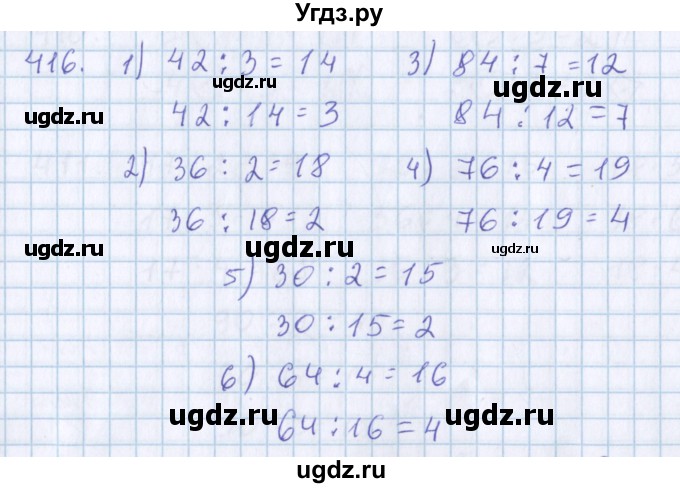 Угдз.ру
416. 1) 42 : 3 = 14 3) 84 : 7 = 12
ugdz.ru ugdz.ru
42 : 14 = 3 84 : 12 = 7
2) 36 : 2 = 18 4) 76 : 4 = 19
ugdz.ru
36 : 18 = 2 76 : 19 = 4
ugdz.ru ugdz.ru
5) 30 : 2 = 15
30 : 15 = 2
6) 64 : 4 = 16
ugdz.ru ugdz.ru
64 : 16 = 4
ugdz.ru